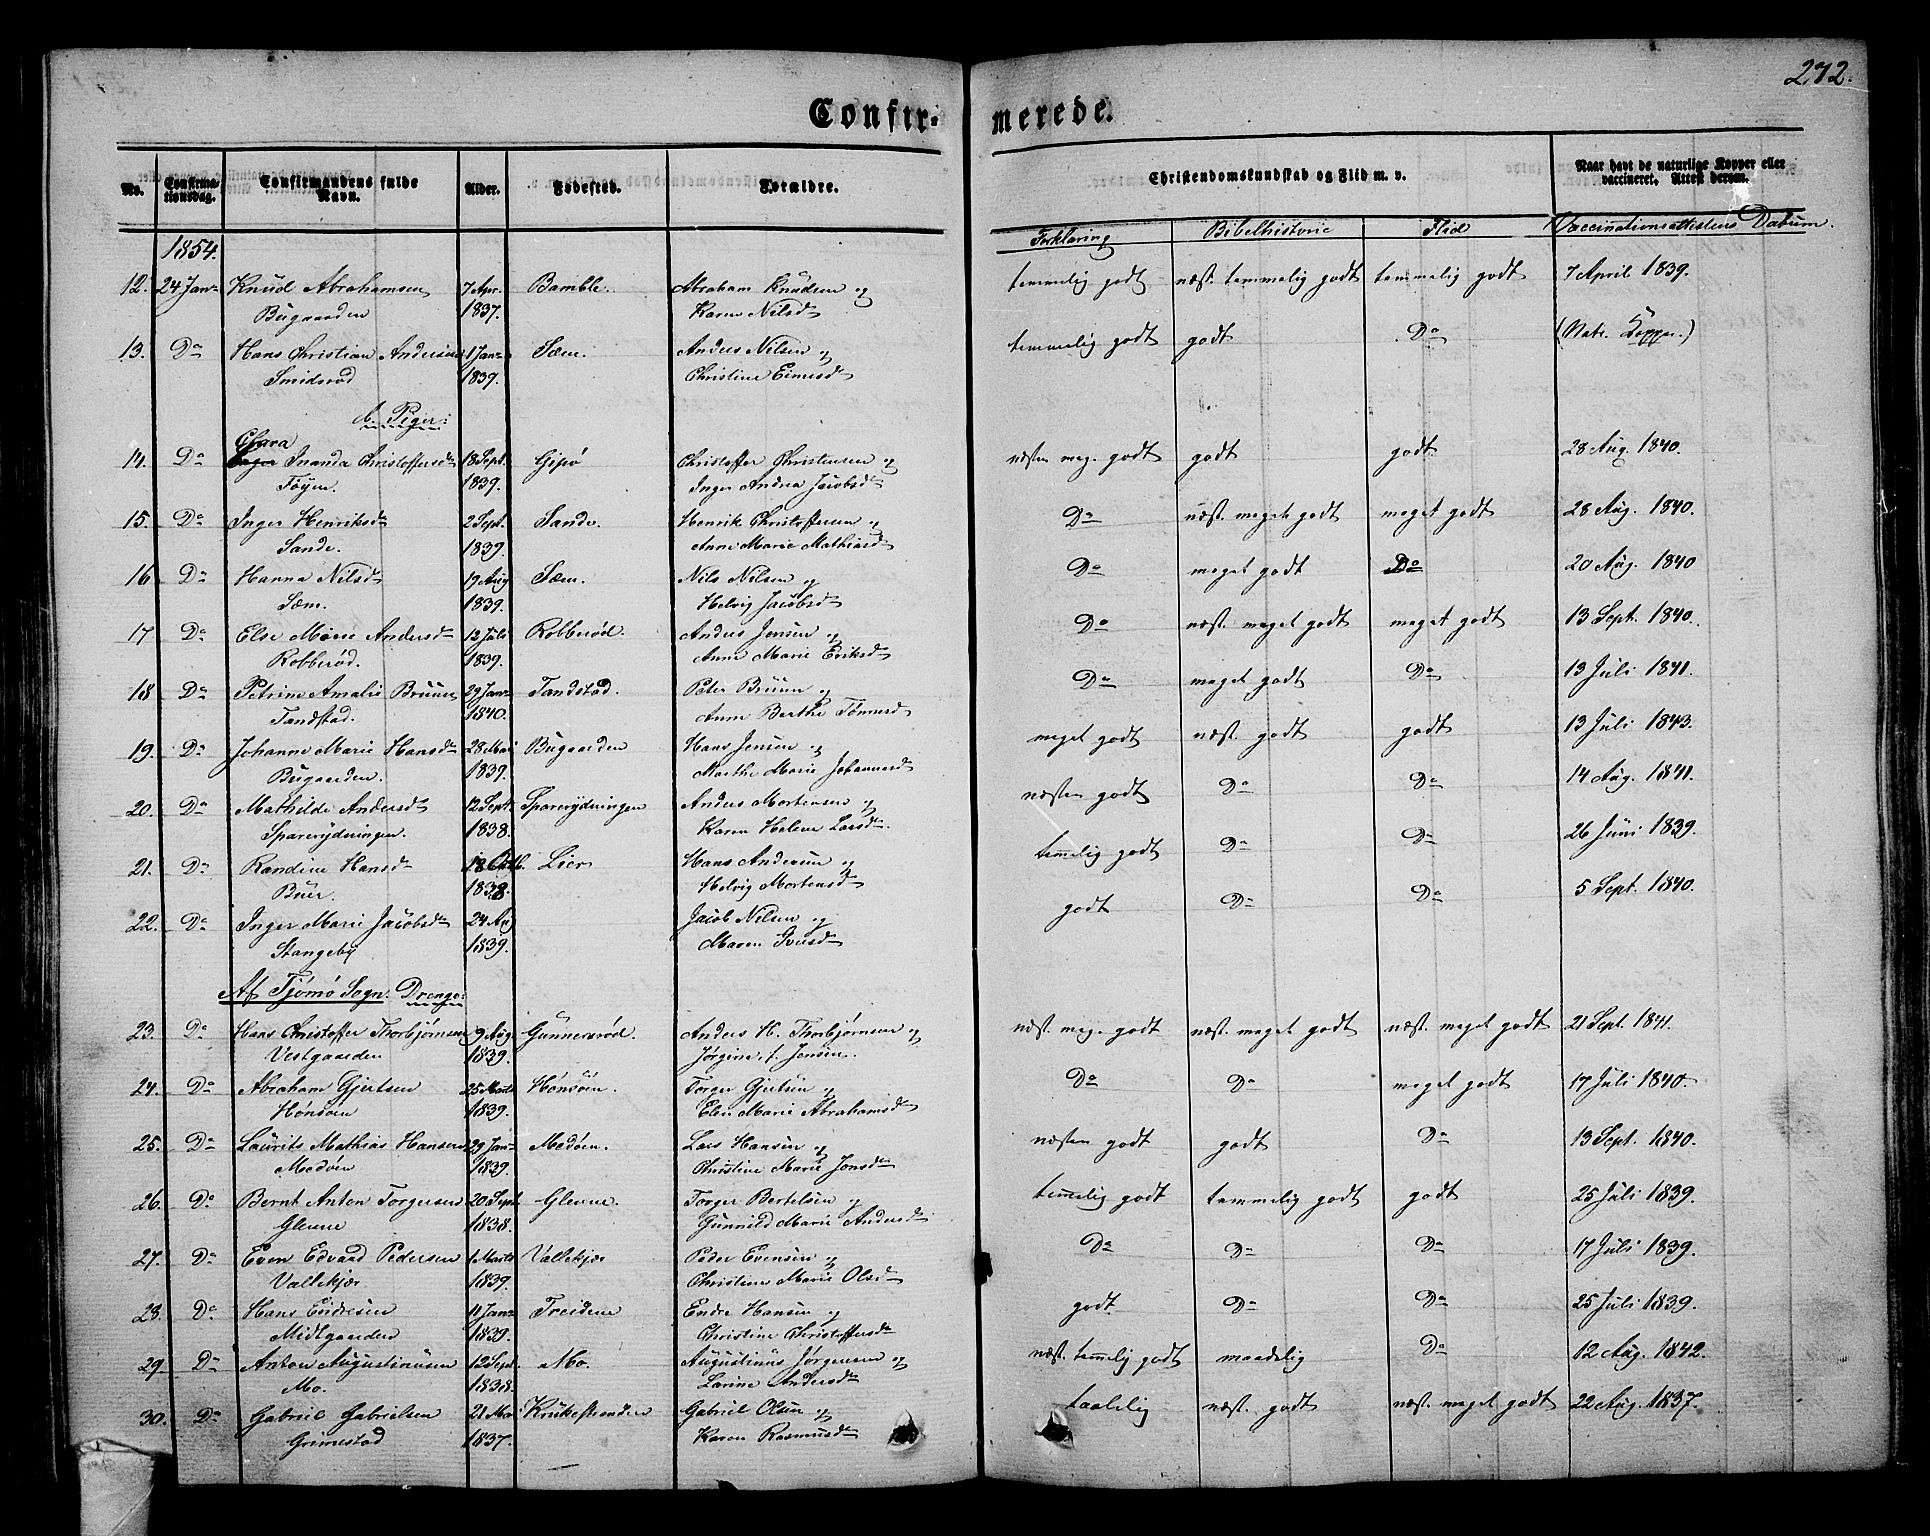 272.
Confir-merede.
No. Confirmationsdag. Confirmandens fulde Navn. Alder. Fødested. Forældre. Christendomskundskab og Flid m. v. Naar havt de naturlige Kopper eller vaccineret. Attest derom.
Forklaring Bibelhistorie Flid Vaccinationsattestens Datum.
1854.
12. 24 Jan. Knud Abrahamsen 7 Apr. Bamble. Abraham Knudsen og temmelig godt næst. temmelig godt temmelig godt 7 April 1839.
Bugaarden 1837. Karen Nilsd
13. Do Hans Christian Andersen 1 Jan. Sæm. Anders Nilsen og temmelig godt godt Do (Natr. Kopper.)
Smidsrød 1839. Christine Einersd
b. Piger:
Chara
14. Do Inanda Christoffersd 18 Sept. Gipø Christoffer Christensen og næsten meg. godt godt godt 28 Aug. 1840.
Føyen 1839. Inger Andrea Jacobsd
15. Do Inger Henriksd 2 Sept. Sande. Henrik Christoffersen og Do næst. meget godt meget godt 28 Aug. 1840.
Sande. 1839. Anne Marie Mathiasd
16 Do Hanna Nilsd 19 Aug Sæm. Nils Nilsen og Do meget godt Do 20 Aug. 1840
Sæm. 1839. Helvig Jacobsd
17 Do Else Marie Andersd 12 Juli Robberød. Anders Jensen og Do næst. meget godt meget godt 13 Sept. 1840.
Robberød. 1839. Anne Marie Eriksd
18 Do Petrine Amalie Bruun 29 Jan. Tandstad. Peter Bruun og Do meget godt Do 13 Juli 1841.
Tandstad. 1840. Anne Berthe Tønnesd
19. Do Johanne Marie Hansd 28 Mai Bugaarden Hans Jensen og meget godt næst. godt godt 13 Juli 1843.
Bugaarden. 1839. Marthe Marie Johannesd
20. Do Mathilde Andersd 12 Sept. Sparerydningen Anders Mortensen og næsten godt Do Do 14 Aug. 1841.
Sparerydningen. 1838. Karen Helene Larsd
21. Do Randine Hansd 18 Octb. Lier Hans Andersen og temmelig godt Do Do 26 Juni 1839.
Buer. 1838. Helvig Mortensd
22. Do Inger Marie Jacobsd 24 Aug Jacob Nilsen og godt Do Do 5 Sept. 1840.
Stangeby 1839. Maren Iversd
Af Tjømø Sogn. Drenge:
23. Do Hans Christoffer Thorbjørnsen 9 Aug. Gunnersrød. Anders H. Thorbjørnsen og næst. meg. godt næst. meget godt næst. meget godt 21 Sept. 1841.
Vestgaarden 1839. Jørgine f. Jensen.
24. Do Abraham Gjertsen 25 Marts Hønsøen. Torger Gjertsen og Do Do meget godt 17 Juli 1840.
Hønsøen 1839. Elen Marie Abrahamsd
25. Do Laurits Mathias Hansen 29 Jan. Medøen. Lars Hansen og næsten godt godt Do 13 Sept. 1840.
Medøen 1839. Christine Marie Jensd
26. Do Bernt Anton Torgersen 20 Sept. Glenne. Torger Bertelsen og temmelig godt temmelig godt godt 25 Juli 1839.
Glenne 1838. Gunnild Marie Andersd
27. Do Even Edvard Pedersen 1 Marts Vallekjær Peder Evensen og Do Do Do 17 Juli 1839.
Vallekjær 1839. Christine Marie Olsd
28. Do Hans Endresen 11 Jan. Treidene Endre Hansen og godt Do Do 25 Juli 1839.
Midtgaarden 1839. Christine Christoffersd
29. Do Anton Augustinusen 12 Sept. Mo. Augustinus Jørgensen og næst. temmelig godt maadelig Do 12 Aug. 1842.
Mo. 1838. Larine Andersd
30. Do Gabriel Gabrielsen 21 Mai Krukestranden Gabriel Olsen og taalelig næst. godt næst. meget godt 22 Aug. 1837.
Grimestad 1837. Karen Rasmusd